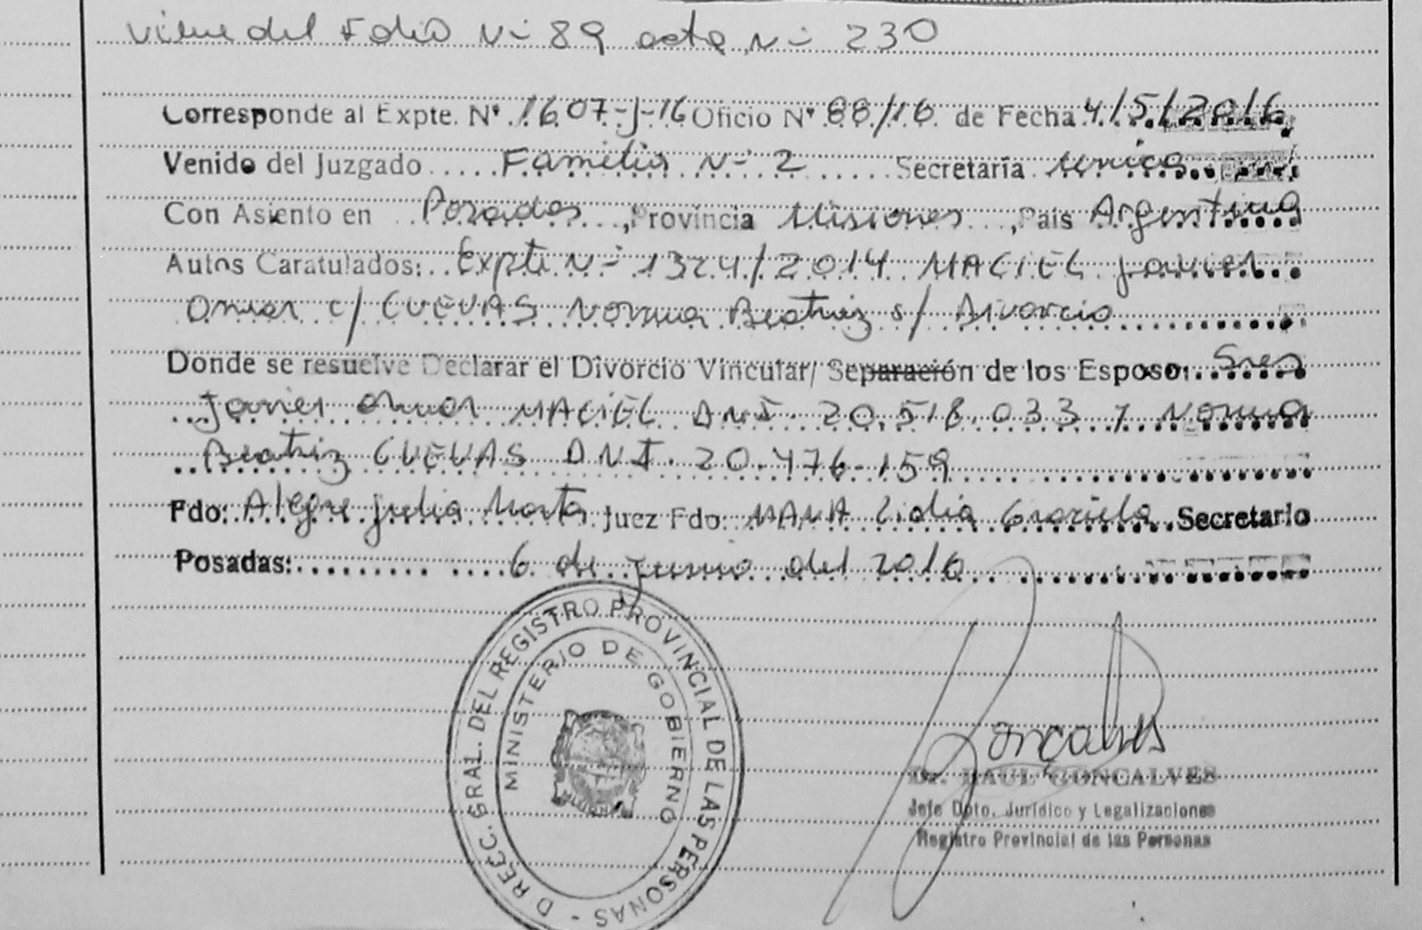 viene del Folio Nº 89 acta Nº 230
Corresponde al Expte. Nº 1607-J-16 Oficio Nº 88/16 de Fecha 4/5/2016
Venido del Juzgado Familia Nº 2 Secretaría única
Con Asiento en Posadas, Provincia Misiones, País Argentina
Autos Caratulados: Expte Nº 1324/2014 MACIEL Javier
Omar c/ CUEVAS Norma Beatriz s/ Divorcio
Donde se resuelve Declarar el Divorcio Vincular/ Separación de los Esposos: Sres
Javier Omar MACIEL DNI. 20.518.033 y Norma
Beatriz CUEVAS DNI. 20.476.159
Fdo: Alegre Julia Marta Juez Fdo: MANA Lidia Graciela Secretario
Posadas: 6 de junio del 2016
DIRECC. GRAL. DEL REGISTRO PROVINCIAL DE LAS PERSONAS -
MINISTERIO DE GOBIERNO
Goncalves
Dr. RAUL GONCALVES
Jefe Dpto. Jurídico y Legalizaciones
Registro Provincial de las Personas